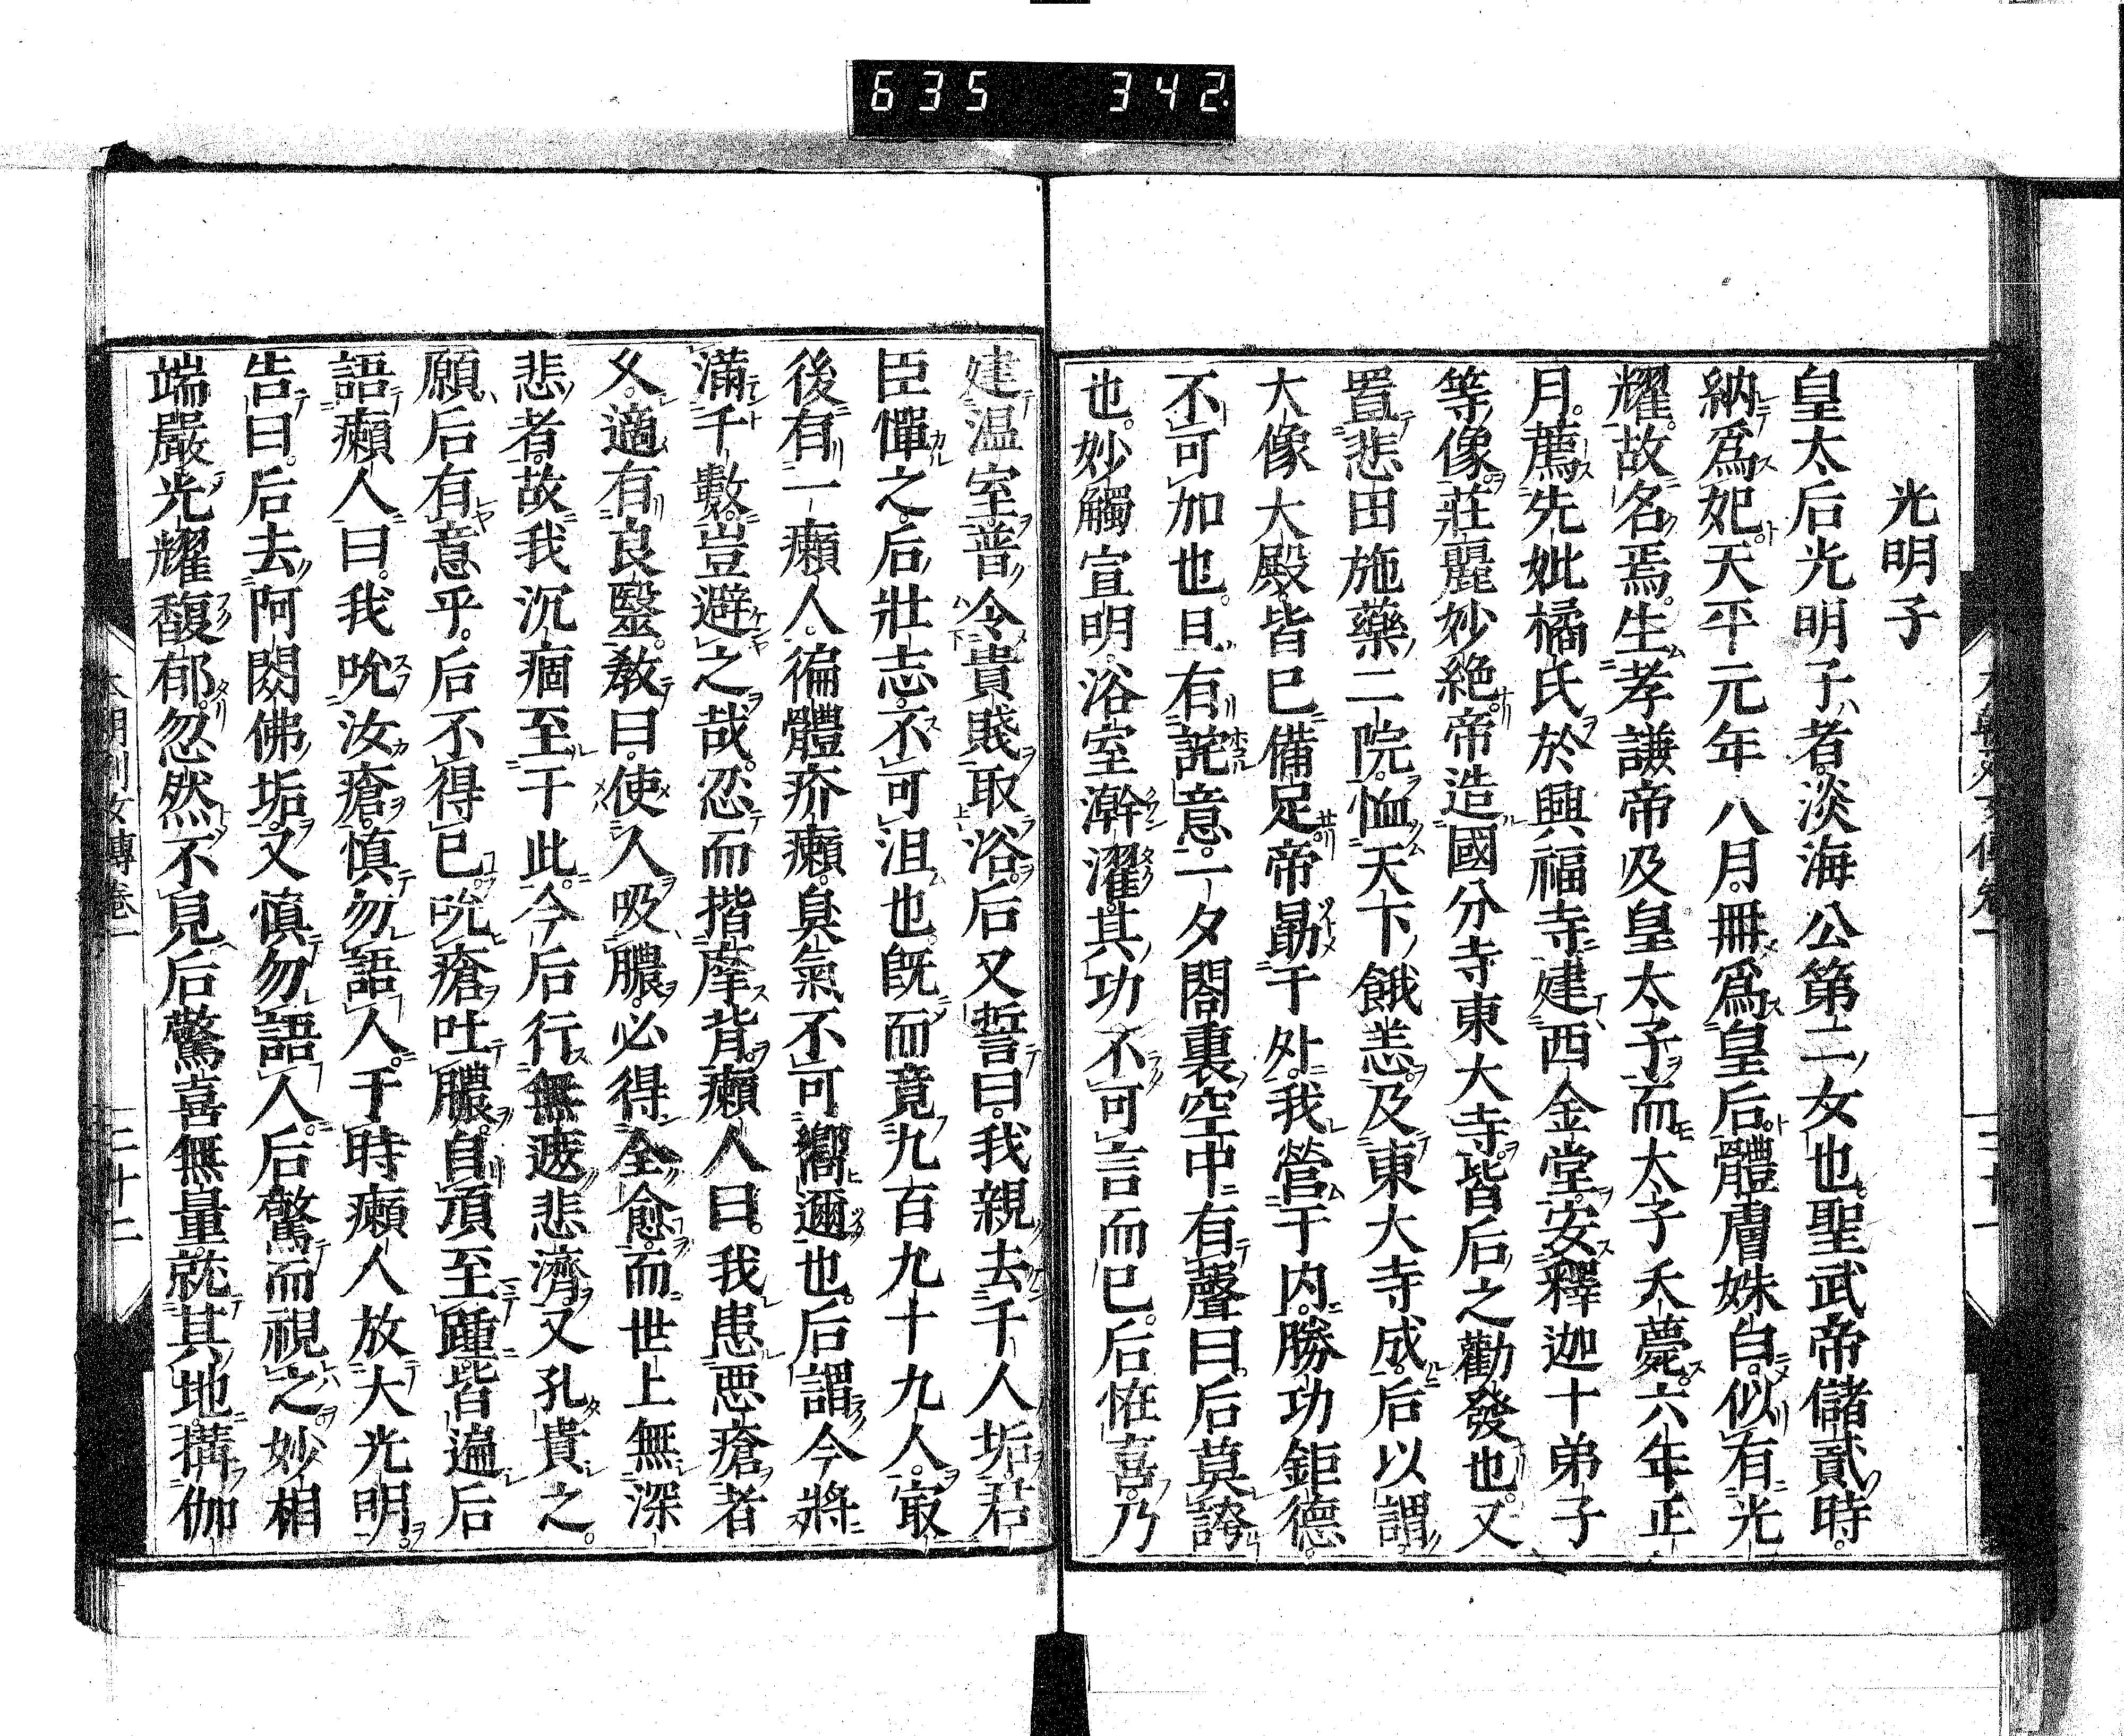 635 342
光明子
皇太后光明子者淡海公第二女也聖武帝儲貳時
納爲妃天平元年八月冊爲皇后體膚姝白似有光
耀故名焉生孝謙帝及皇太子而太子夭薨六年正
月薦先妣橘氏於興福寺建西金堂安釋迦十弟子
等像莊麗妙絶帝造國分寺東大寺皆后之勸發也又
置悲田施藥二院恤天下餓恙及東大寺成后以謂
大像大殿皆已備足帝勗于外我營于内勝功鉅德
不可加也且有詫意一夕閤裏空中有聲曰后莫誇
也妙觸宣明浴室澣濯其功不可言而已后恠喜乃
建温室普令貴賤取浴后又誓曰我親去千人垢君
臣憚之后壯志不可沮也既而竟九百九十九人㝡
後有一癩人徧體疥癩臭氣不可嚮邇也后謂今將
滿千數豈避之哉忍而揩摩背癩人曰我患惡瘡者
久適有良毉敎曰使人吸膿必得全愈而世上無深
悲者故我沉痼至于此今后行無遮悲濟又孔貴之
願后有意乎后不得已吮瘡吐膿自頂至踵皆遍后
語癩人曰我吮汝瘡慎勿語人于時癩人放大光明
告曰后去阿閦佛垢又慎勿語人后驚而視之妙相
端嚴光耀馥郁忽然不見后驚喜無量就其地搆伽
本朝列女傳卷一
三十二